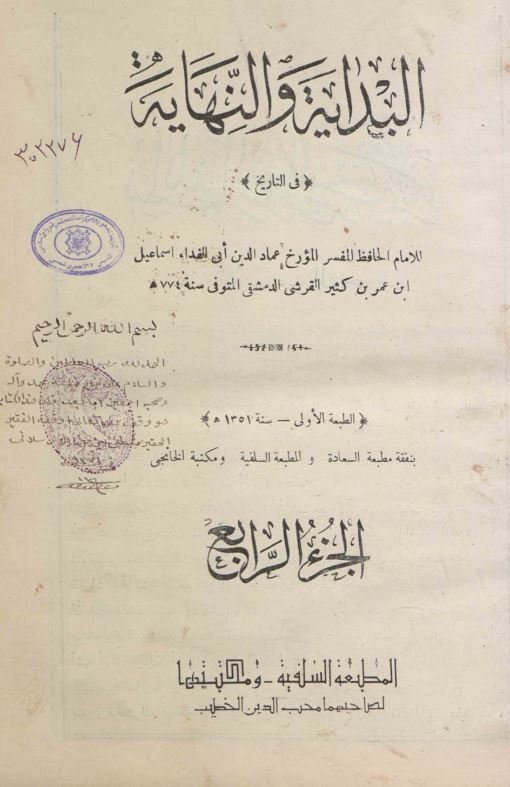 البداية والنهاية
﴿ في التاريخ ﴾
٣٠٣٢٧٦
للامام الحافظ المفسر المؤرخ عماد الدين أبي الفداء اسماعيل
ابن عمر بن كثير القرشي الدمشقي المتوفى سنة ٧٧٤ ه
بسم الله الرحمن الرحيم
الحمد لله رب العالمين والصلوة
والسلام
﴿ الطبعة الأولى — سنة ١٣٥١ ه ﴾
بنفقة مطبعة السعادة و المطبعة السلفية ومكتبة الخانجي
الجزء الرابع
المطبعة السلفية - ومكتبتها
لصاحبهما محب الدين الخطيب